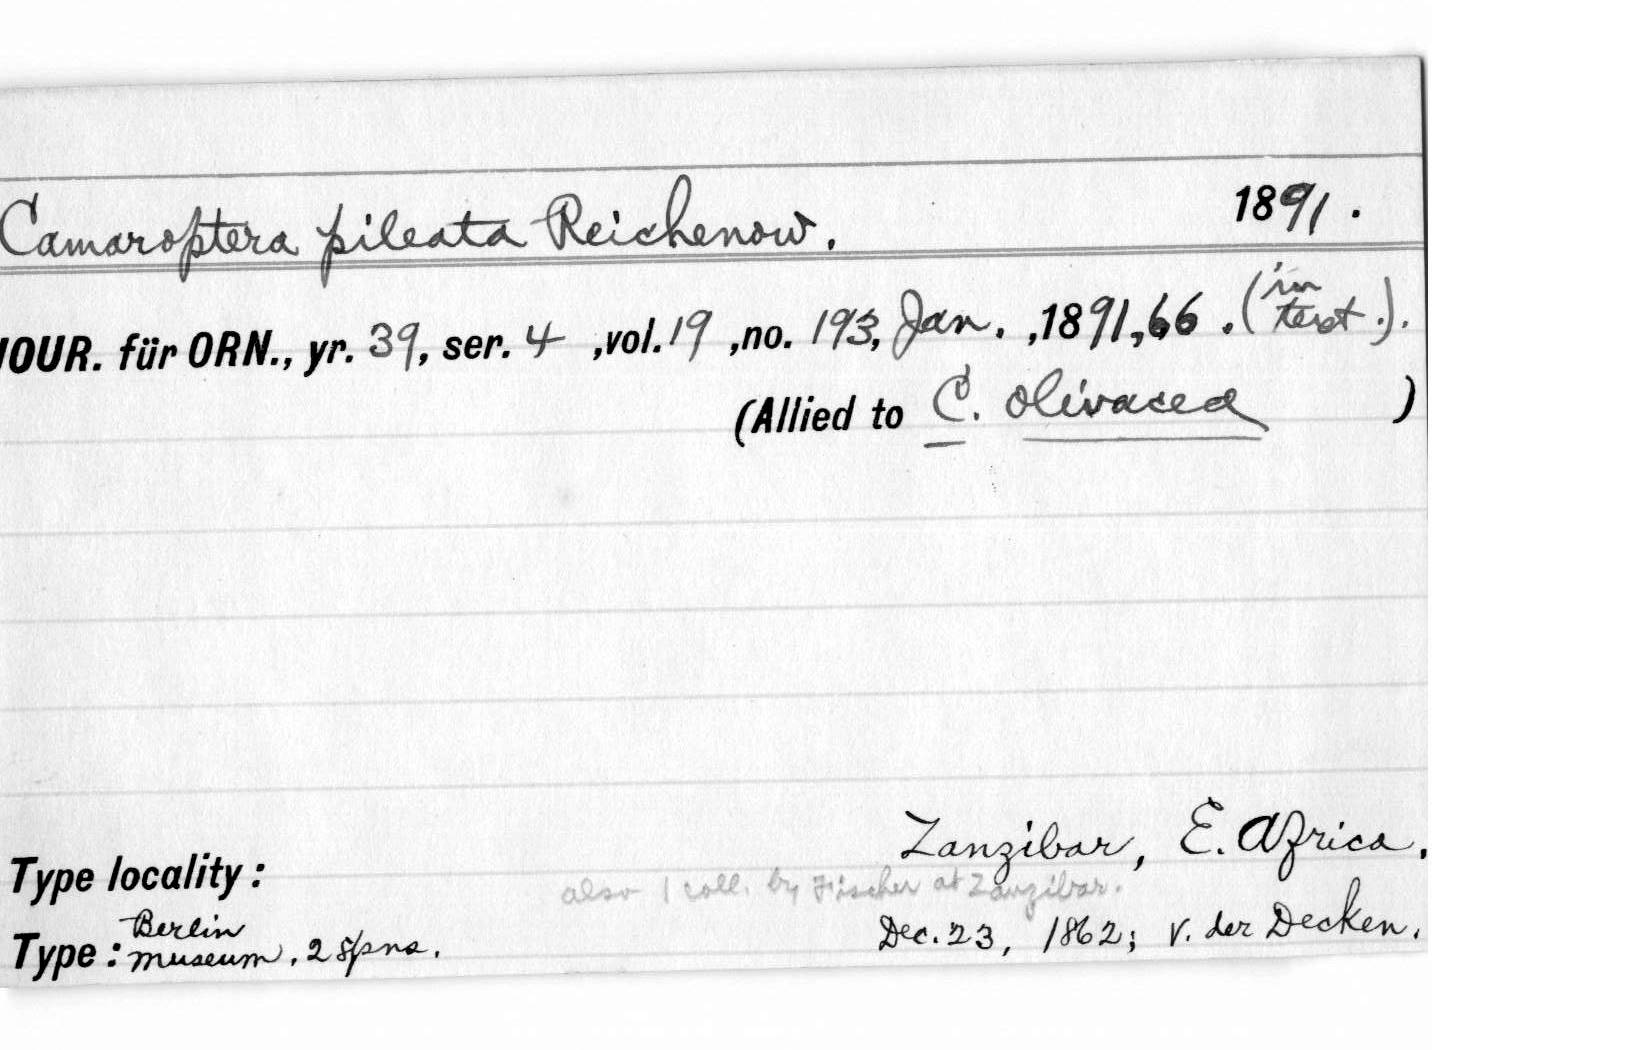 Camaroptera pileata Reichenow. 1891.
JOUR. für ORN., yr. 39, ser. 4 ,vol. 19 ,no. 193, Jan. ,1891,66 . (in text.).
(Allied to C. olivacea )
Type locality : Zanzibar, E. Africa.
also 1 coll. by Fischer at Zanzibar.
Type : Berlin museum, 2 spns. Dec. 23, 1862; v. der Decken.